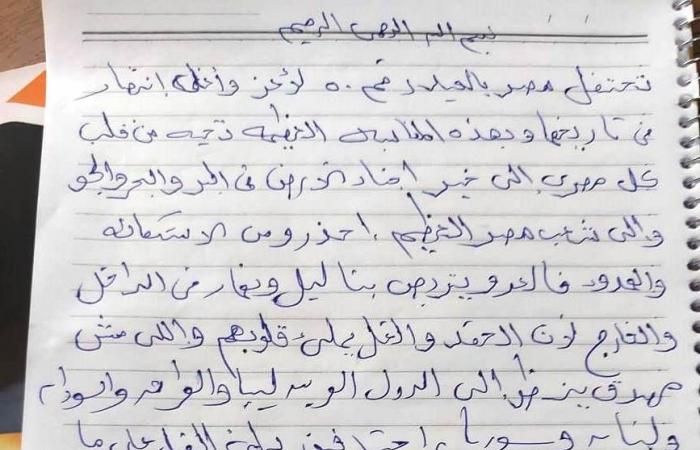 بسم الله الرحمن الرحيم
تحتفل مصر بالعيد رقم ٥٠ لأعز وأغلى إنتصار
فى تاريخها وبهذه المناسبه العظيمه تحيه من قلب
كل مصرى الى خير اجناد الارض فى البر والبحر والجو
والى شعب مصر العظيم . احذرو من الاستكانه
والهدوء فالعدو يتربص بنا ليل ونهار من الداخل
والخارج لان الحقد والغل يملئ قلوبهم واللى مش
مصدق ينظر الى الدول العربيه ليبيا والعراق والسودان
ولبنان وسوريا على ما